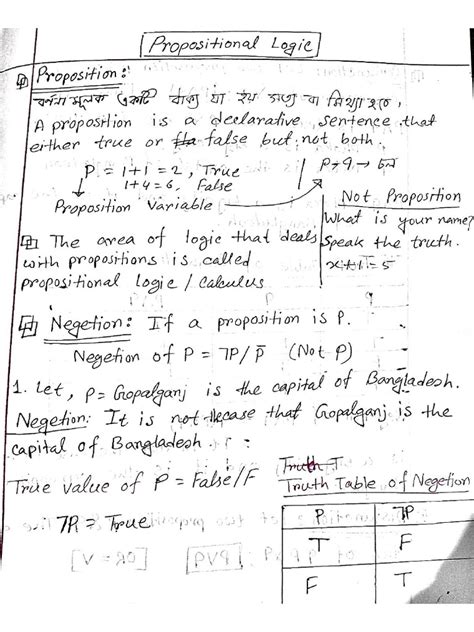 Propositional Logic
Proposition:
বর্ণনা মূলক একটি বাক্য যা হয় সত্য বা মিথ্যা হবে,
A proposition is a declarative sentence that
either true or false but not both.
P = 1+1=2, True
1+4=6, False
Proposition Variable
Not Proposition
What is your name?
Speak the truth.
x+1=5
The area of logic that deals
with propositions is called
propositional Logic / Calculus
Negetion: If a proposition is P.
Negetion of P = ⅂P/p̅ (Not P)
1. Let, P= Gopalganj is the capital of Bangladesh.
Negetion: It is not the case that Gopalganj is the
capital of Bangladesh.
True value of P = False/F
⅂P = True
Truth T
Truth Table of Negetion
P ⅂P
T F
F T